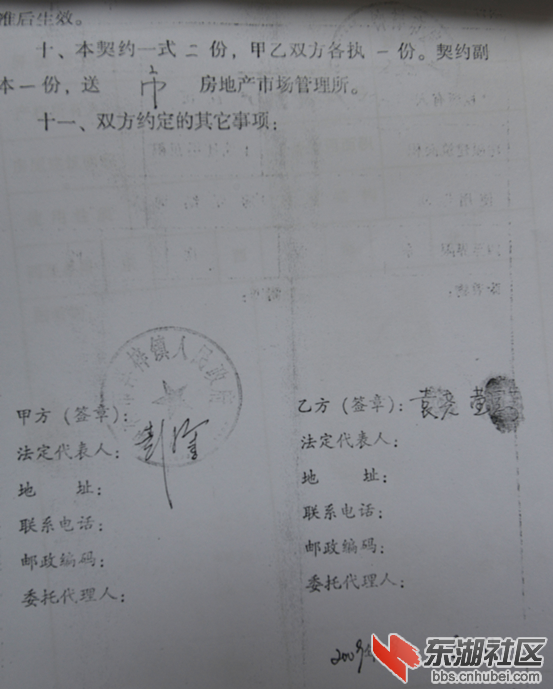 准后生效。
十、本契约一式二份，甲乙双方各执一份。契约副
本一份，送 市 房地产市场管理所。
十一、双方约定的其它事项：
镇人民政府
甲方（签章）：
法定代表人：
地 址：
联系电话：
邮政编码：
委托代理人：
乙方（签章）：袁
法定代表人：
地 址：
联系电话：
邮政编码：
委托代理人：
东湖社区
bbs.cnhubei.com